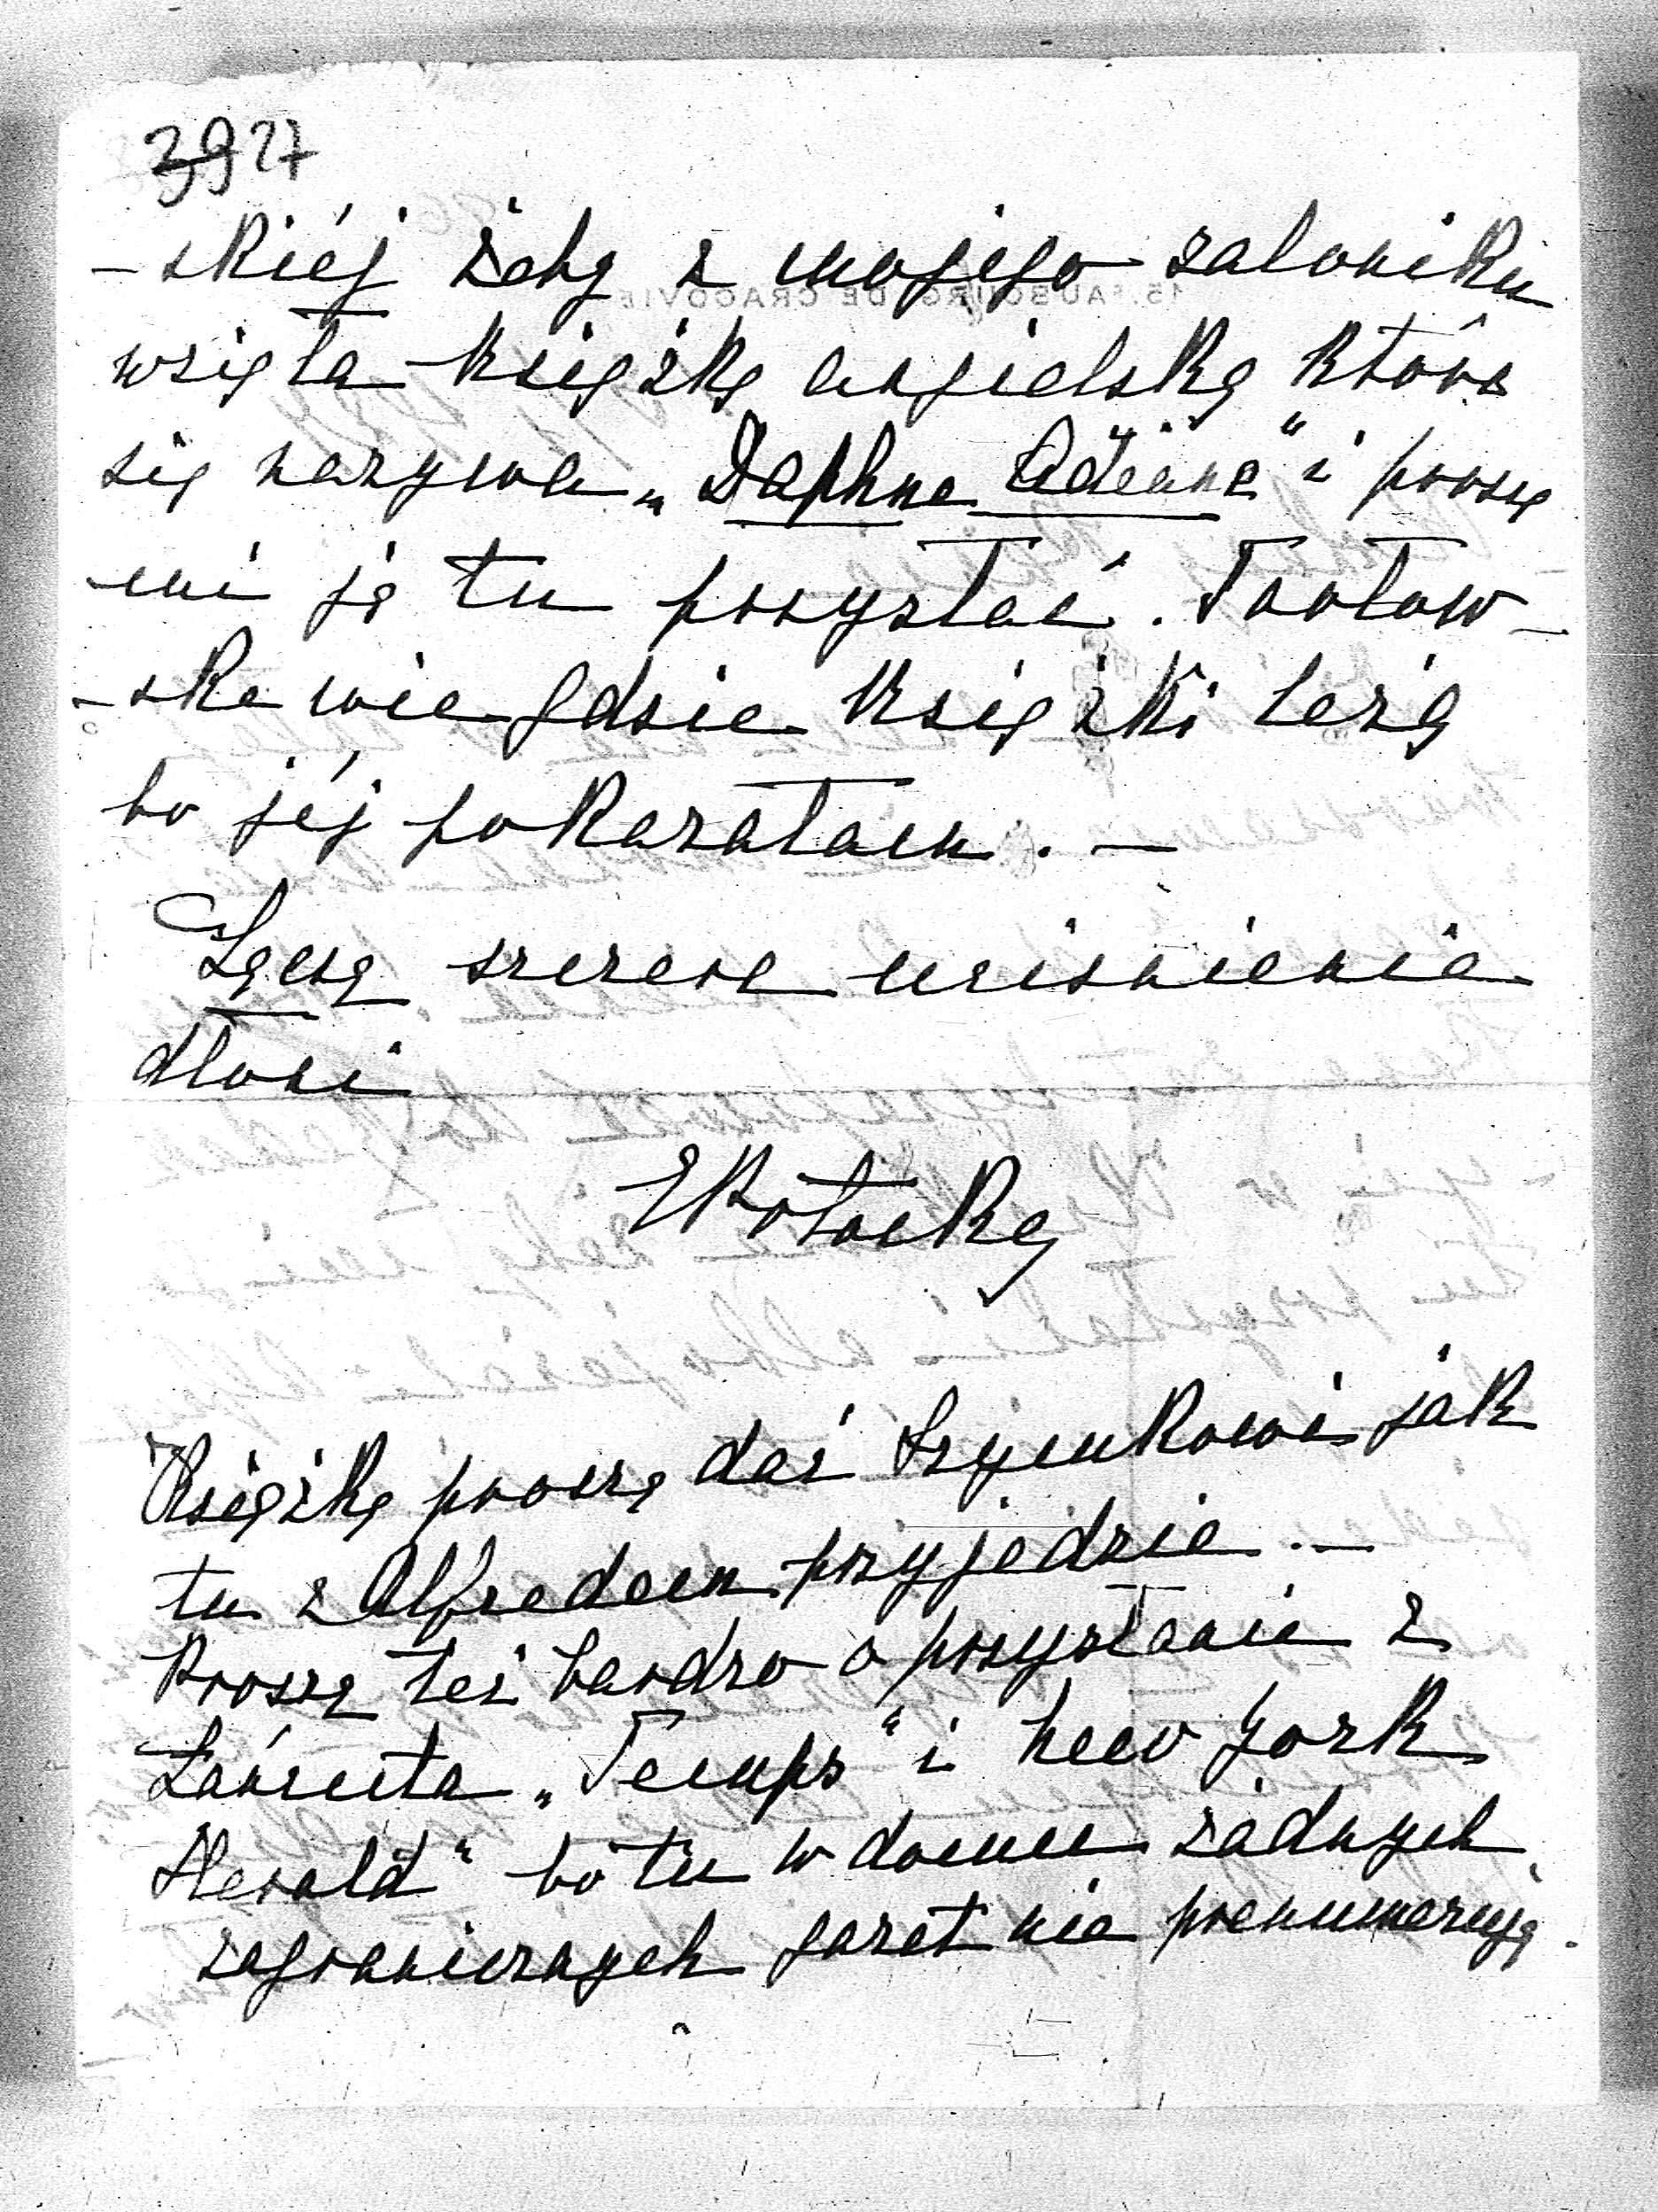 3927
- skiéj żeby z mojego saloniku
wzięła książkę angielską która
się nazywa „Daphne Adeane" i proszę
mi ją tu przysłać. Torłow-
- ska wie gdzie książki leżą
bo jéj pokazałam. —
Łączę szczere uściśnienie
dłoni
EPotocka
Książkę proszę dać Szymkowi jak
tu z Alfredem przyjedzie. —
Proszę też bardzo o przysłanie z
Łańcuta „Temps" i New York
Herald" bo tu w domu żadnych
zagranicznych gazet nie prenumerują.
15. FAUBOURG DE CRACOVIE